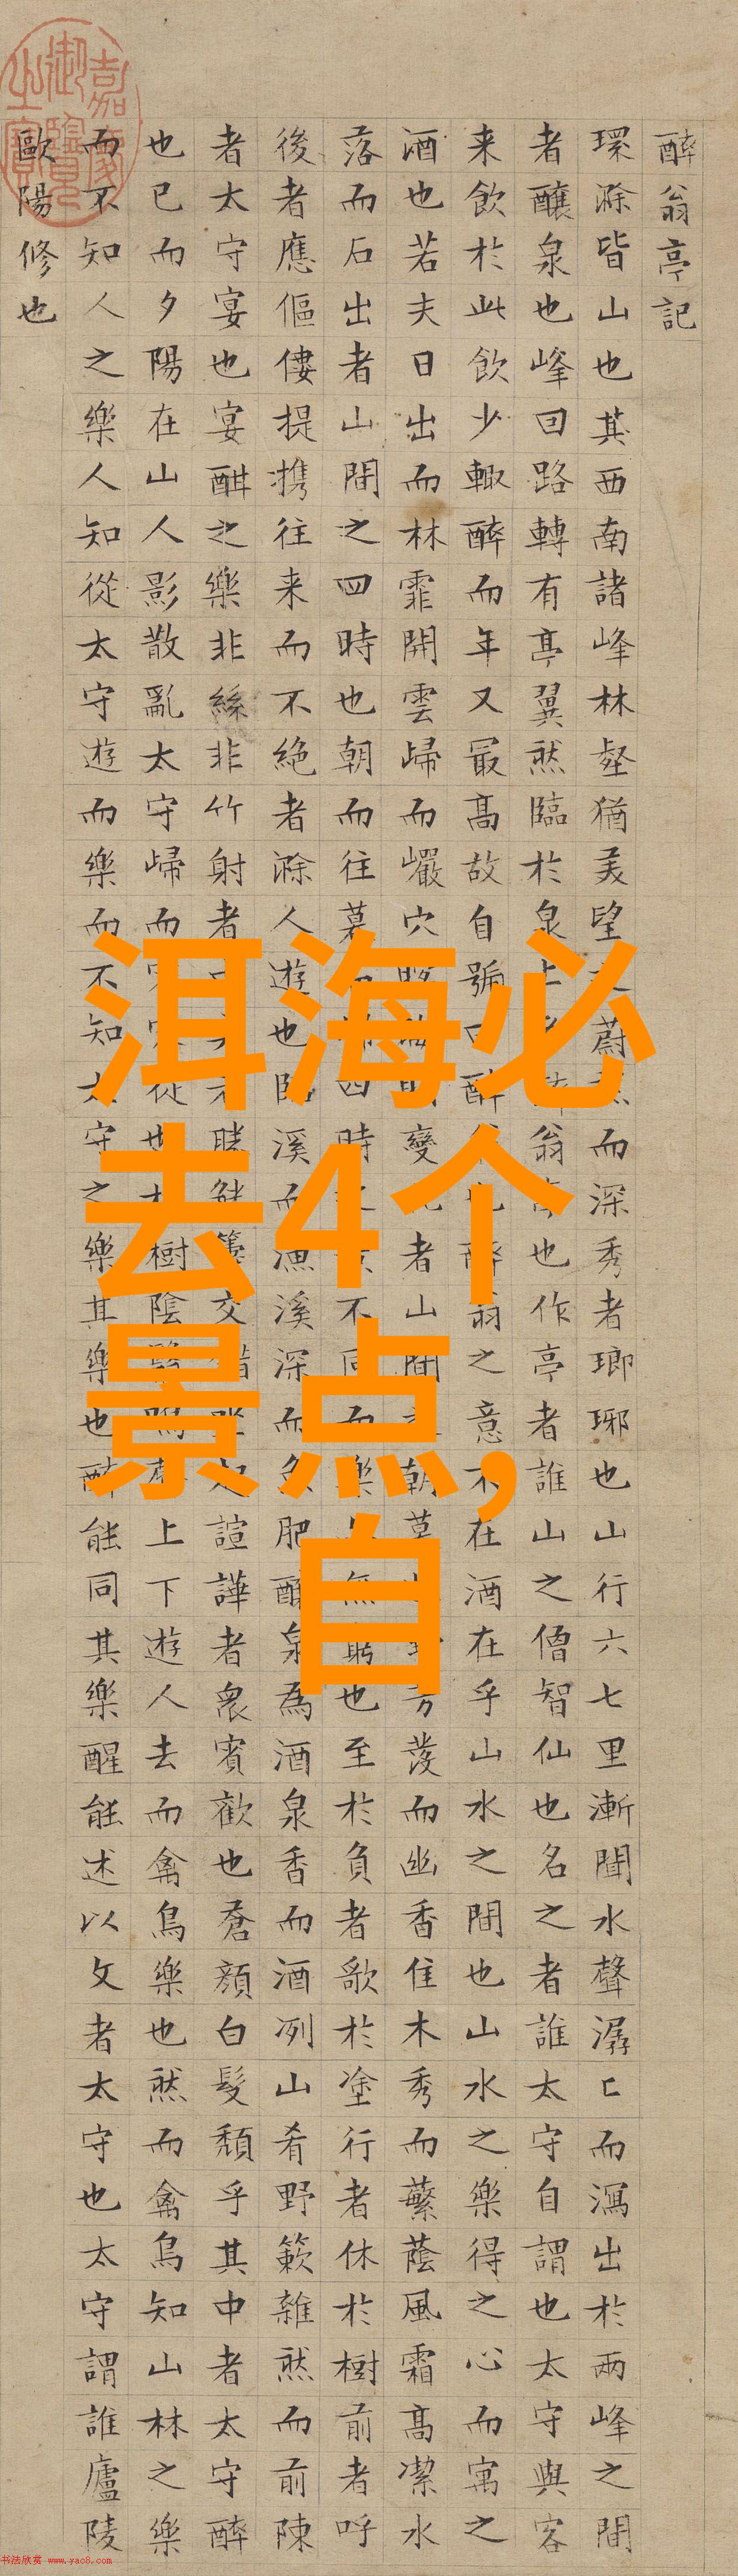 醉翁亭記
環滁皆山也其西南諸峰林壑猶美望之蔚然而深秀者瑯琊也山行六七里漸聞水聲潺匕而瀉出於兩峰之間
者釀泉也峰回路轉有亭翼然臨於泉上翁也作亭者誰山之僧智仙也名之者誰太守自謂也太守與客
来飲於此飲少輙醉而年又最高故自號曰醉也醉翁之意不在酒在乎山水之間也山水之樂得之心而寓之
酒也若夫日出而林霏開雲歸而巖穴明變者山間朝暮芳發而幽香佳木秀而蘩蔭風霜高潔水
落而石出者山間之四時也朝而往暮四時不同而樂無窮也至於負者歌於塗行者休於樹前者呼
後者應傴僂提攜往来而不絕者滁人遊也臨溪而漁溪深而魚肥釀泉為酒泉香而酒冽山肴野蔌雜然而前陳
者太守宴也宴酣之樂非絲非竹射者勝觥籌交錯起諠譁者衆賓歡也蒼顏白髮頹乎其中者太守醉
也已而夕陽在山人影散亂太守歸而從也樹陰鳴上下遊人去而禽鳥樂也然而禽鳥知山林之樂
而不知人之樂人知從太守遊而樂而不知太守之樂其樂也醉能同其樂醒能述以文者太守也太守謂誰廬陵
歐陽修也
洱海必
去4个
景点,
自
书法欣赏 www.yac8.com